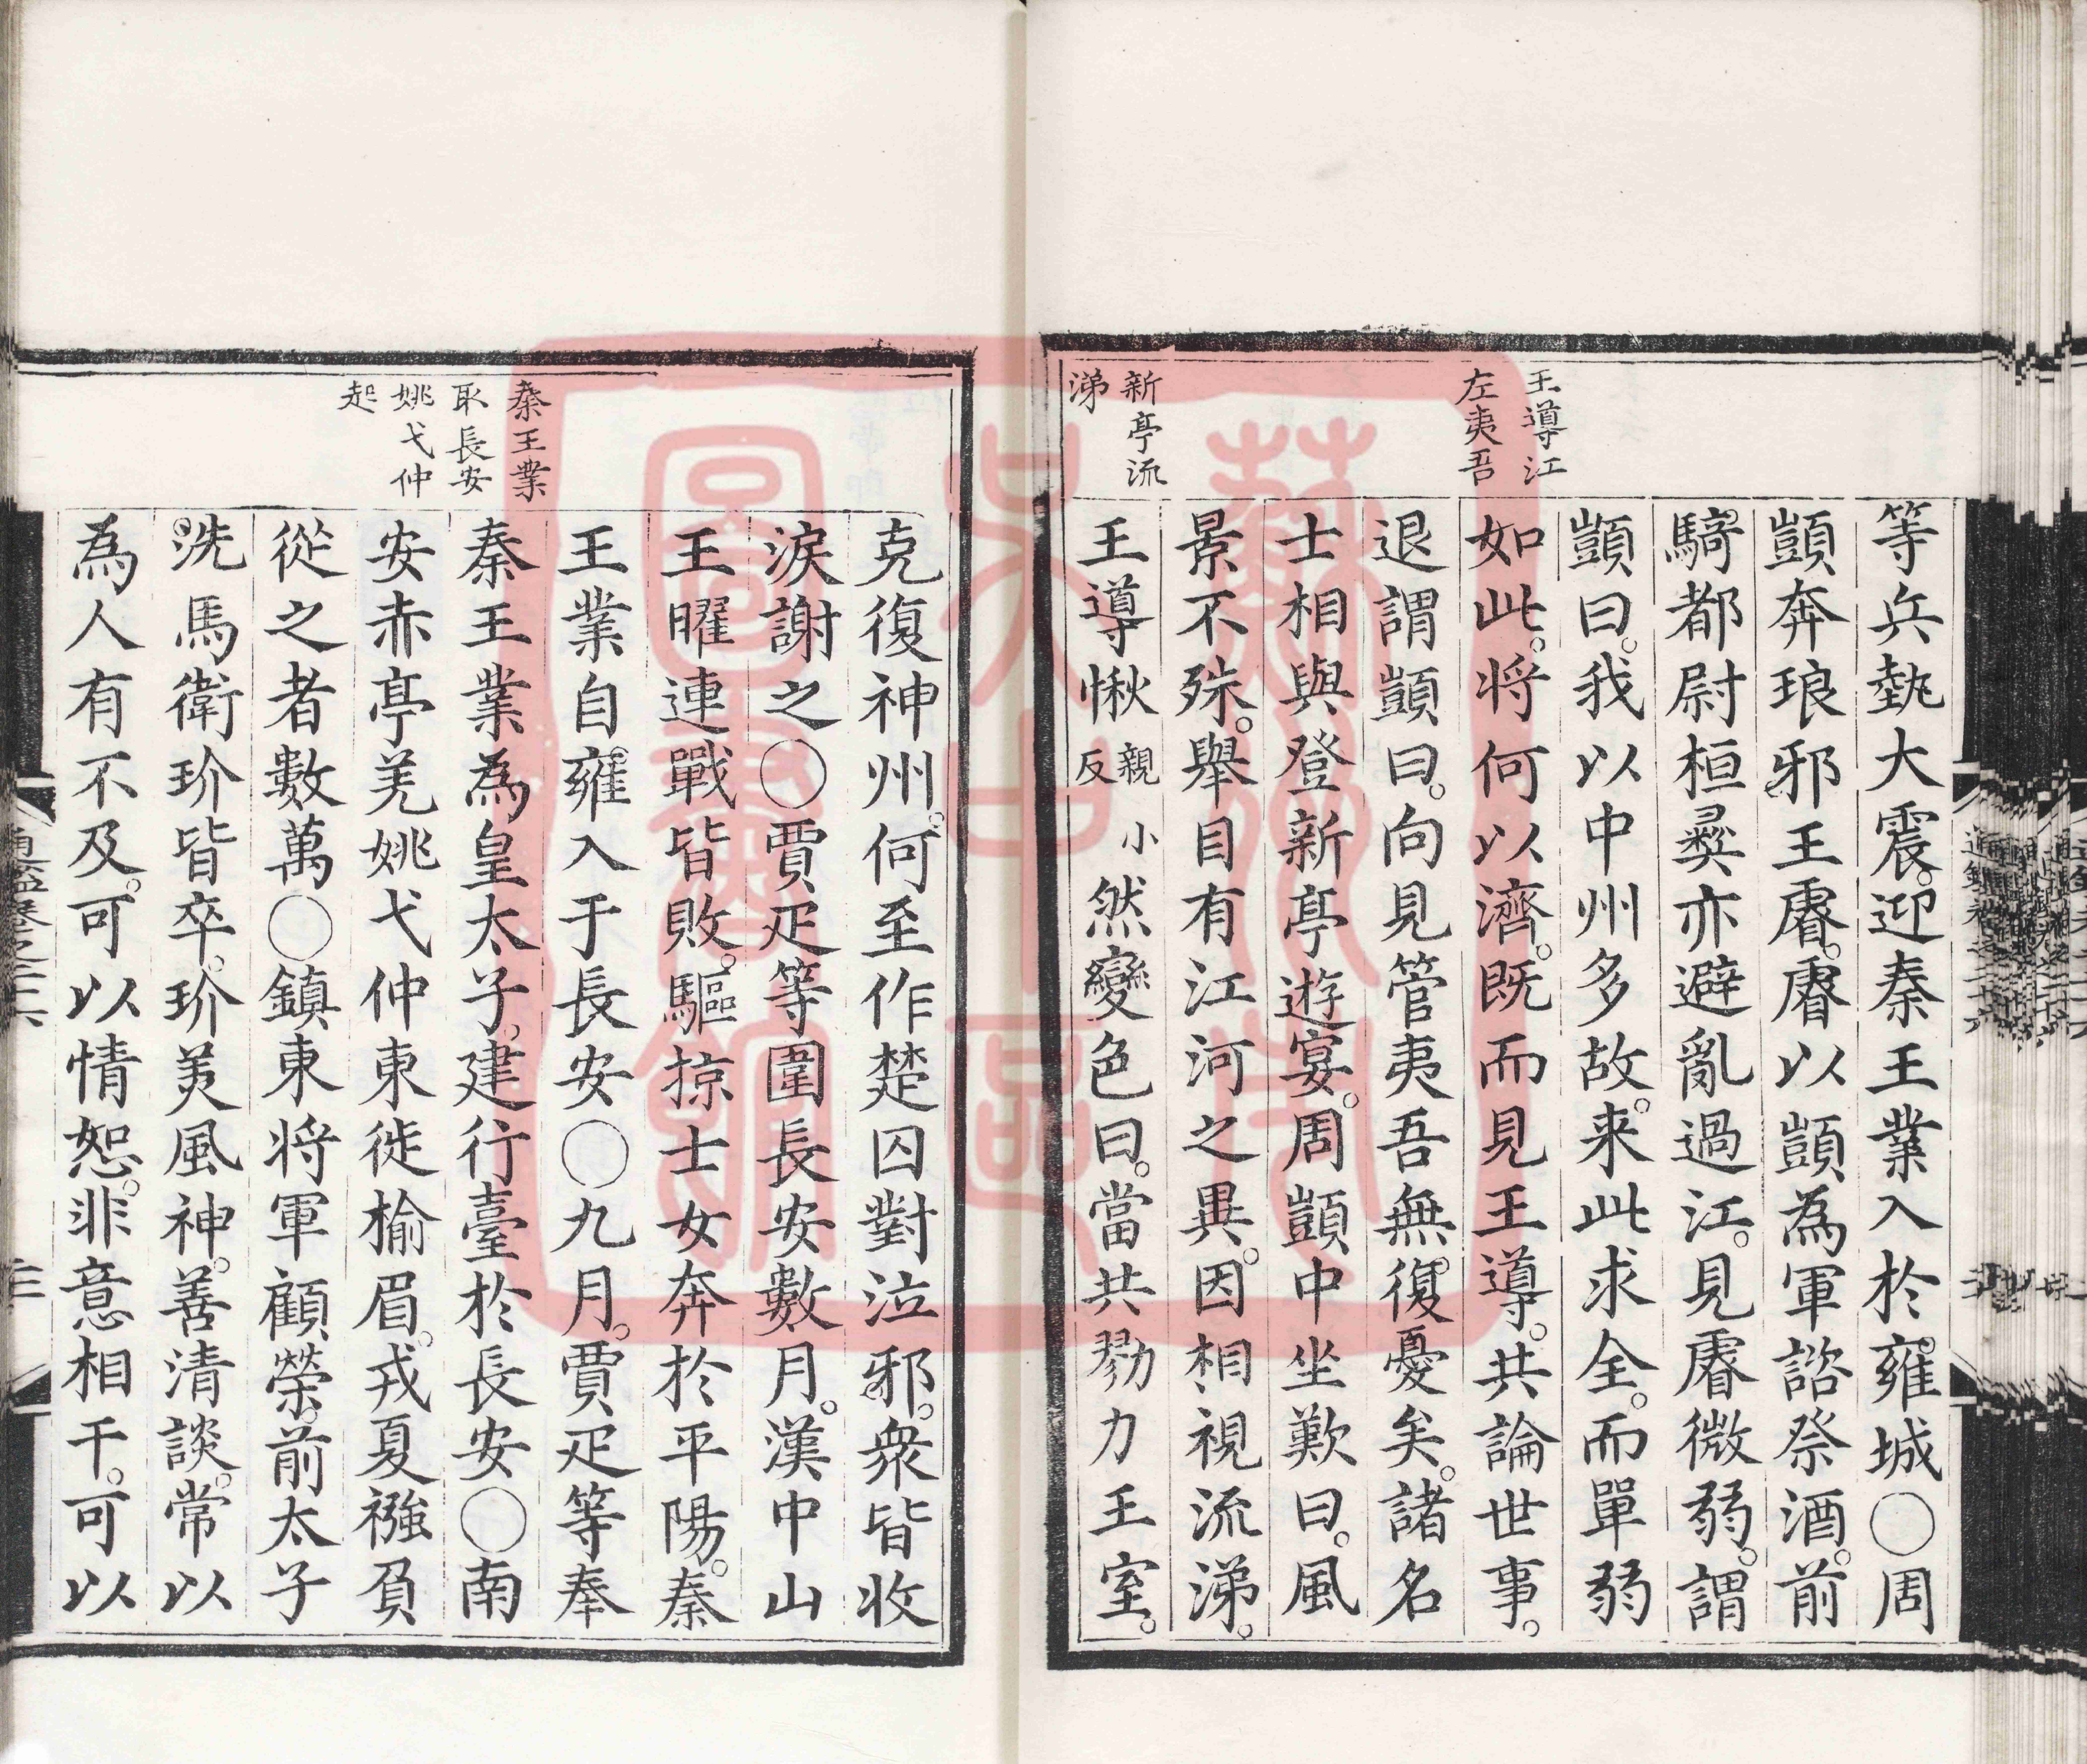 王導江
左夷吾
新亭流
涕
等兵執大震。迎秦王業入於雍城〇周
顗奔琅邪王睿。睿以顗為軍諮祭酒。前
騎都尉桓彝亦避亂過江。見睿微弱。謂
顗曰。我以中州多故。来此求全。而單弱
如此。将何以濟。既而見王導。共論世事。
退謂顗曰。向見管夷吾無。復憂矣。諸名
士相與登新亭遊宴。周顗中坐歎曰。風
景不殊。舉目有江河之異。因相視流涕。
王導愀親小反然變色曰。當共勠力王室。
秦王業
取長安
姚弋仲
起
克復神州。何至作楚囚對泣邪。衆皆收
淚謝之〇賈疋等圍長安數月。漢中山
王曜連戰皆敗。驅掠士女奔於平陽。秦
王業自雍入于長安〇九月。賈疋等奉
秦王業為皇太子。建行臺於長安〇南
安赤亭羌姚弋仲東徙榆眉。戎夏襁負
從之者數萬〇鎮東将軍顧榮。前太子
洗馬衛玠皆卒。玠美風神。善清談。常以
為人有不及。可以情恕。非意相干。可以
通鑑卷之二六
蘇州市
吳中區
圖書館